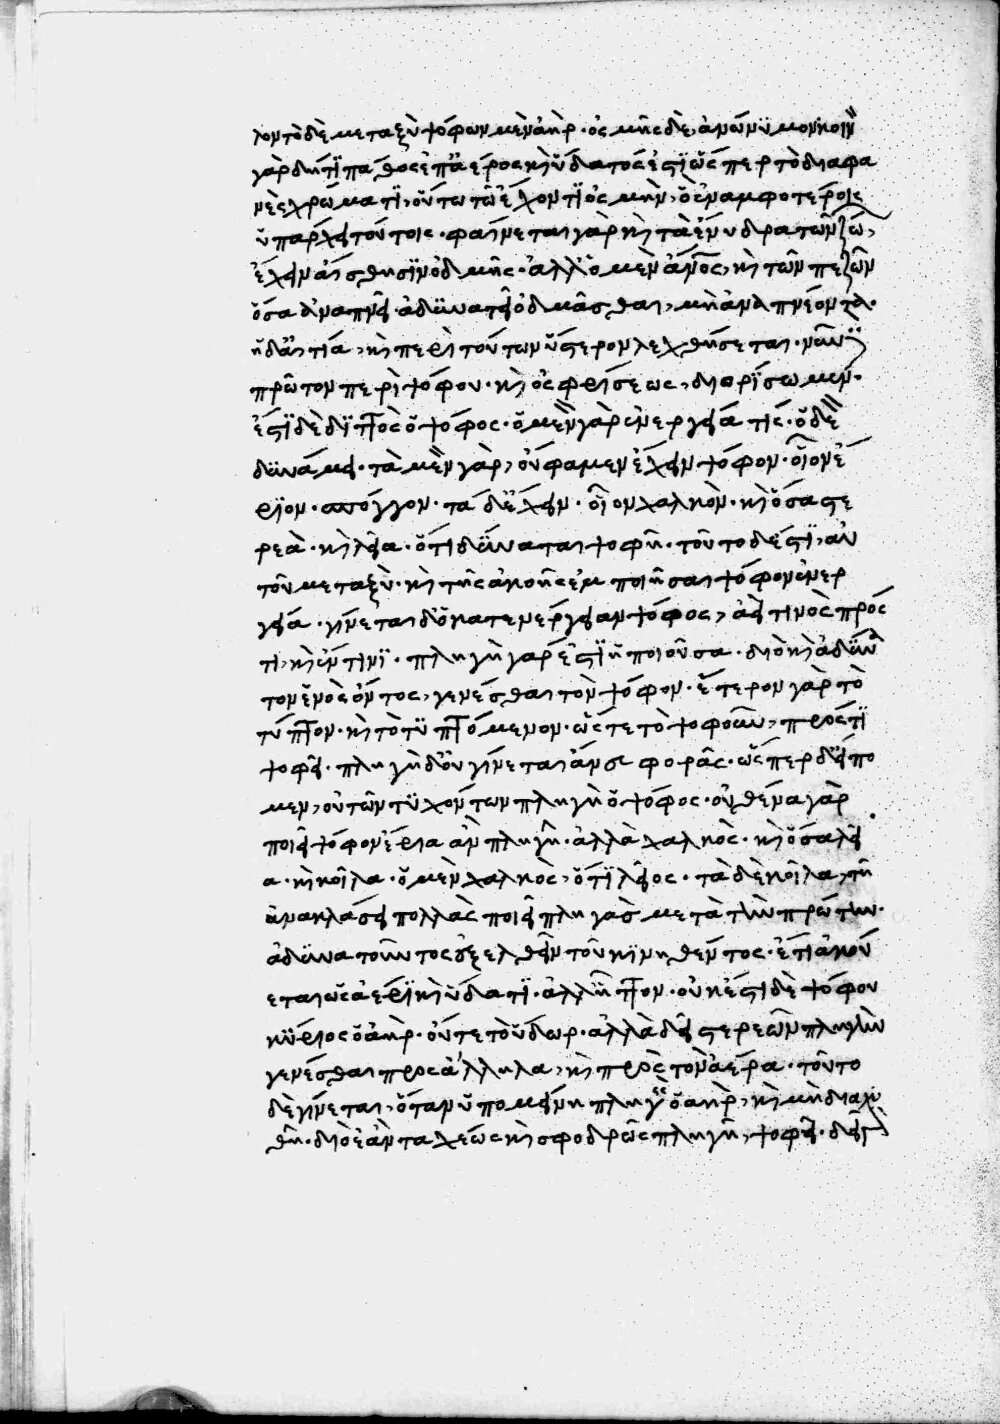 λον τὸ δὲ μεταξὺ ψόφων μὲν ἀὴρ· ὀσμῆς δὲ, ἀνώνυμον κοινὸν
γὰρ δή τι πάθος ἐπ' ἀέρος καὶ ὕδατος ἐστὶν ὥσπερ τὸ διαφα
νὲς χρώματι, οὕτω τῶ ἔχοντι ὀσμὴν, ὃ ἐν ἀμφοτέροις
ὑπάρχει τούτοις· φαίνεται γὰρ καὶ τὰ ἔνυδρα τῶν ζώων,
ἔχειν αἴσθησιν ὀδμῆς· ἀλλ' ὁ μὲν ἄνθρωπος, καὶ τῶν πεζῶν
ὅσα ἀναπνεῖ· ἀδυνατεῖ ὀδμᾶσθαι, μὴ ἀναπνέοντα·
ἡ δ' αἰτία, καὶ περὶ τούτων ὕστερον λεχθήσεται· νῦν δὲ
πρῶτον περὶ ψόφου· καὶ ὀσφρήσεως, διορίσωμεν·
ἐστὶ δὲ διττὸς ὁ ψόφος· ὁ μὲν γὰρ ἐνεργεία τίς· ὁ δὲ
δυνάμει· τὰ μὲν γὰρ, οὔ φαμεν ἔχειν ψόφον· οἷον ἔ
ριον· σπόγγον· τὰ δ' ἔχειν· οἷον χαλκὸν· καὶ ὅσα στε
ρεὰ· καὶ λεῖα· ὅτι δύναται ψοφεῖν· τοῦτο δ' ἐστὶν, αὐ
τοῦ μεταξὺ· καὶ τῆς ἀκοῆς ἐμποιῆσαι ψόφον ἐνερ
γεία· γίνεται δ' ὁ κατ' ἐνέργειαν ψόφος, ἀεί τινὸς πρός
τι, καὶ ἔν τινι· πληγὴ γάρ ἐστὶν ἡ ποιοῦσα· διὸ καὶ ἀδύνα
τον ἑνὸς ὄντος, γενέσθαι τὸν ψόφον· ἕτερον γὰρ τὸ
τύπτον· καὶ τὸ τυπτόμενον· ὥστε τὸ ψοφοῦν, πρός τι
ψοφεῖ· πληγὴ δ' οὐ γίνεται ἄνευ φορᾶς· ὥσπερ δ' εἴπο
μεν, οὐ τῶν τυχόντων πληγὴ ὁ ψόφος· οὐθένα γὰρ
ποιεῖ ψόφον ἔρια ἂν πληγῆ· ἀλλὰ χαλκὸς· καὶ ὅσα λεῖ
α· καὶ κοῖλα· ὁ μὲν χαλκὸς, ὅτι λεῖος· τὰ δὲ κοῖλα, τῆ
ἀνακλάσει πολλὰς ποιεῖ πληγὰς μετὰ τὴν πρώτην·
ἀδυνατοῦντος ἐξελθεῖν τοῦ κινηθέντος· ἔτι ἀκού
εται ὡς ἀέρι καὶ ὕδατι· ἀλλ' ἧττον· οὐκ ἔστι δὲ ψόφου
κύριος ὁ ἀὴρ· οὔτε τὸ ὕδωρ· ἀλλὰ δεῖ στερεῶν πληγὴν
γενέσθαι πρὸς ἄλληλα, καὶ πρὸς τὸν ἀέρα· τοῦτο
δὲ γίνεται, ὅταν ὑπομείνη πληγεὶς ὁ ἀὴρ, καὶ μὴ διαχυ
θῆ· διὸ ἐὰν ταχέως καὶ σφοδρῶς πληγῆ, ψοφεῖ· δεῖ γὰρ